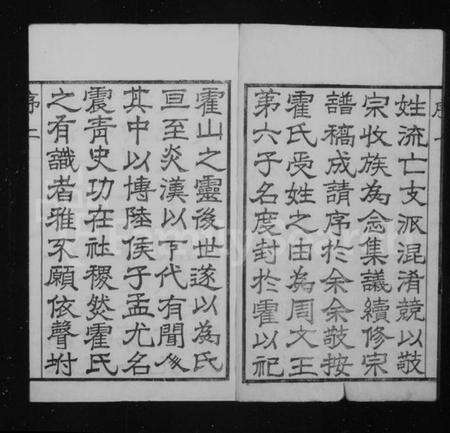 序一
姓流亡支派混淆競以敬
宗收族為念集議續修宗
譜稿成請序於余余敬按
霍氏受姓之由為周文王
第六子名度封於霍以祀
霍山之靈後世遂以為氏
亘至炎漢以下代有聞人
其中以博陸侯子孟尤名
震青史功在社稷然霍氏
之有識者雅不願依聲坿
序二